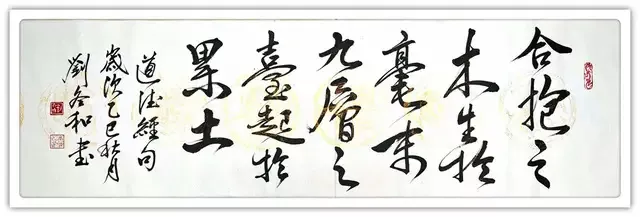 合抱之
木生於
毫末
九層之
臺起於
累土
道德經句
歲次乙巳秋月
劉冬和書